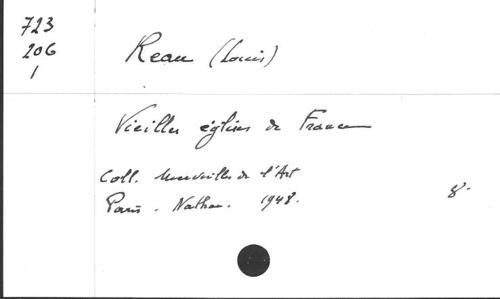 723
206
1
Reau (Louis)
Vieilles églises de France
Coll. Merveilles de l'Art
Paris. Nathan. 1948. 8°.